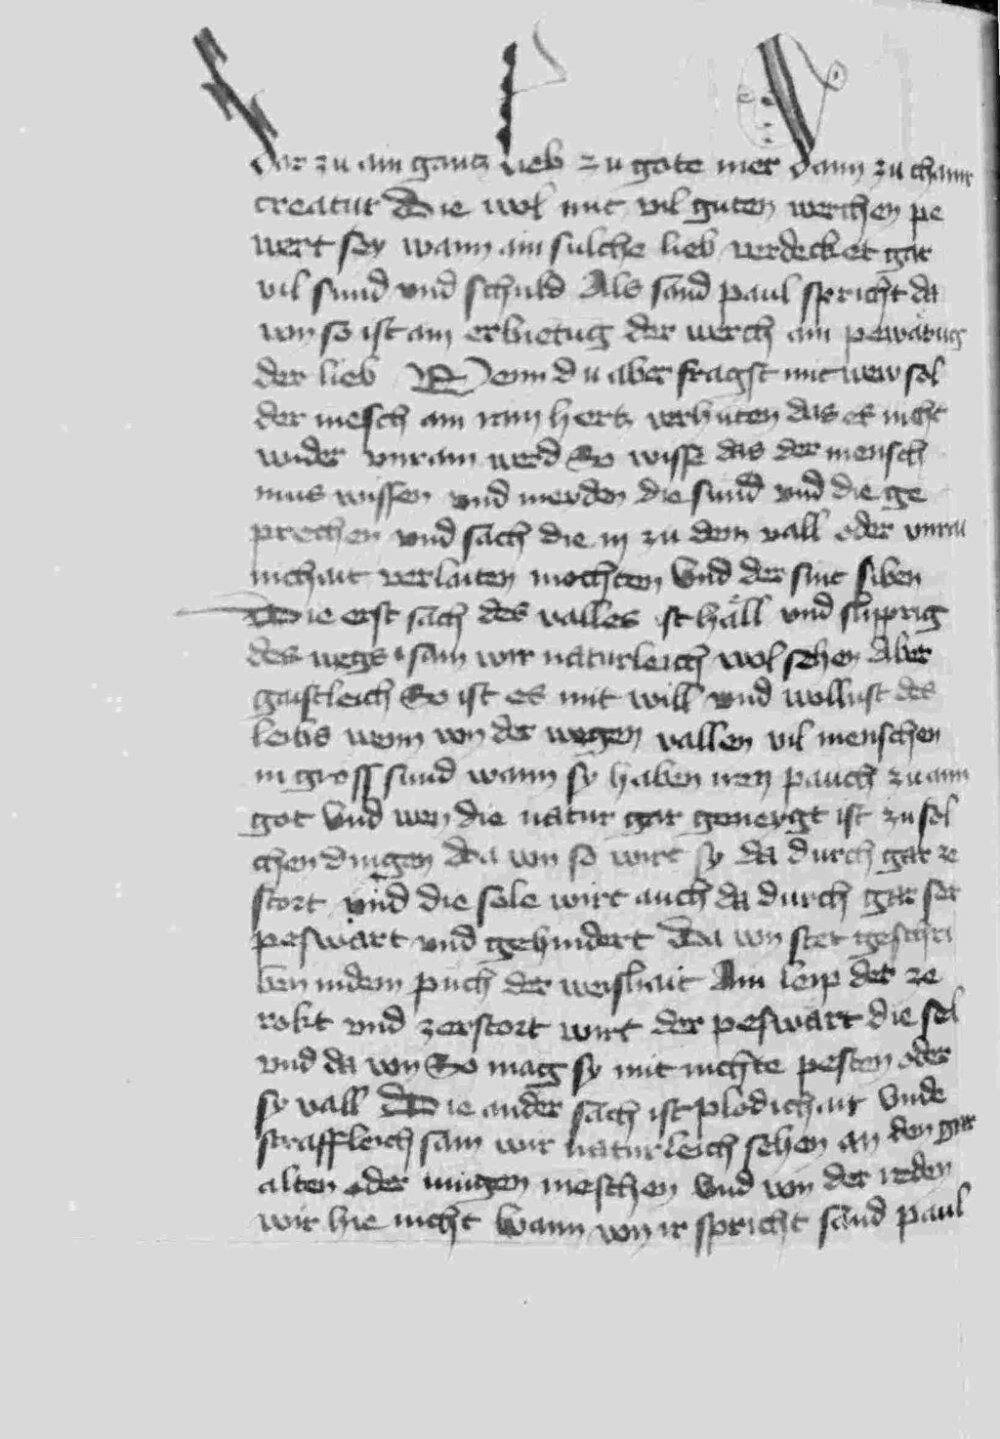 dar zu ain gantz lieb zu gote mer dann zu chainer
creatur Die wol mit vil guten werchen pe
wert sey wann ain sulche lieb verdecket gar
vil sund vnd schuld Als sand paul spricht da
von so ist ain erbietug der werch ain pewärug
der lieb Wenn du aber fragst mit wew sol
der mesch ain rain hertz verhüten das es nicht
wider vnrain werd So wisse das der mensch
mus wissen vnd meyden die sund vnd die ge
prechen vnd sach die in zu dem vall oder vnrai
nichait verlaiten mochten Vnd der sint siben
Die erst sach des valles ist häll vnd slipprig
des wegs sam wir naturleich wol sehen Aber
gaistleich So ist es mit will vnd wollust des
leibs wenn von der wegen vallen vil menschen
in gross sund wann sy haben iren pauch zu aim
got Vnd wen die natur gar geneygt ist zu sol
chen dingen Da von so wirt sy da durch gar ze
stort vnd die sele wirt auch da durch gar ser
peswärt vnd gehindert Da von stet geschri
ben in dem puch der weishait Ain leip der ze
rokt vnd zerstort wirt der peswärt die sel
vnd da von So mag sy mit nichte pesten oder
sy vall Die ander sach ist plodichait vnde
straffleich sam wir naturleich sehen an den gar
alten oder iungen meschen Vnd von der reden
wir hie nicht Wann von ir spricht sand paul